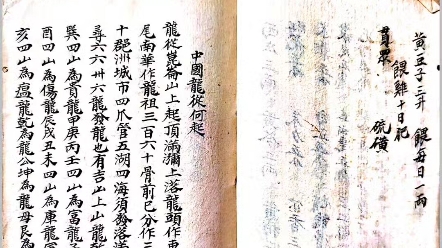 黃豆子三升 餵每日一兩
餵雞十日肥
貫眾 硫磺
中國龍從何起
龍從崑崙山上起頂滿瀰上落龍頭作東
尾南華作龍祖三百六十骨前已分作三
十郡洲城市四爪管五湖四海須發落滿
尋六六卅六龍發龍也有吉凶上山龍
巽四山為貴龍甲庚丙壬四山為富龍子
酉四山為傷龍辰戌丑未四山為庫龍
亥四山為瘟龍乾為龍公坤為龍母艮為